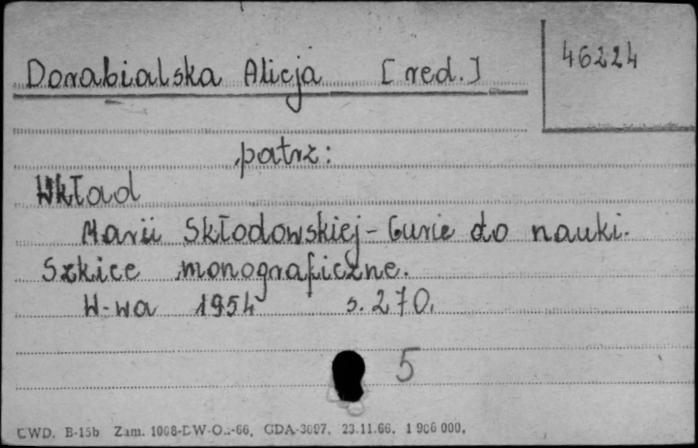 Dorabialska Alicja [red.]
46224
patrz:
Wkład
Marii Skłodowskiej-Curie do nauki.
Szkice monograficzne.
W-wa 1954 s. 270.
5
CWD. B-15b Zam. GDA-3097. 23.11.66. 1 906 000.